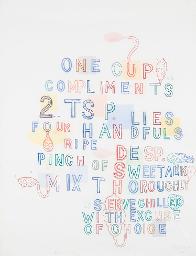 ONE CUP
COMPLIMENTS
2 TSP LIES
FOUR HANDFULS
RIPE DESP.
PINCH OF SWEETALK
MIX THOROUGHLY
SERVE CHILLED
WITH EXCUSE
OF CHOICE